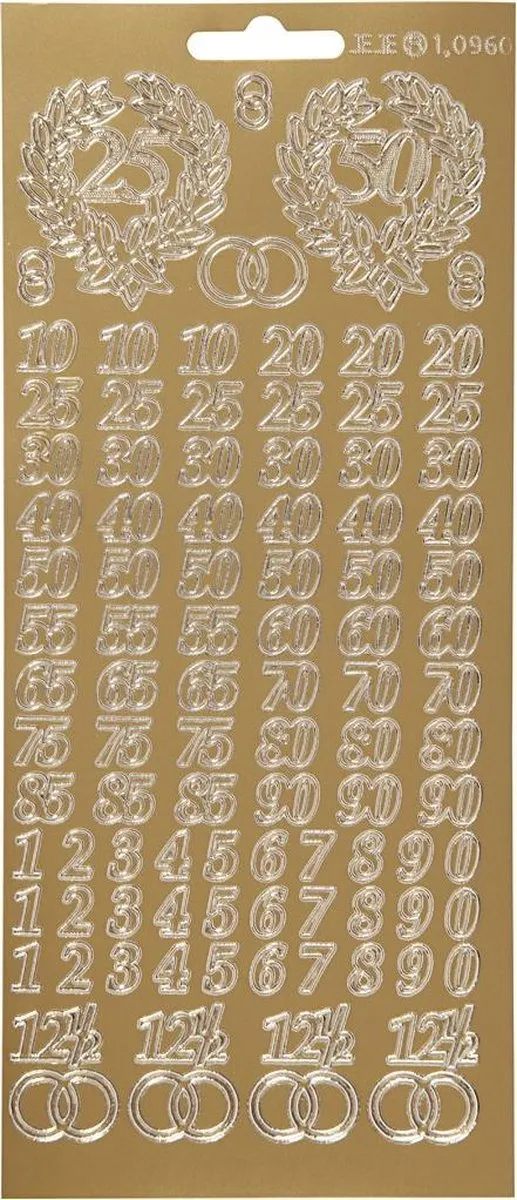 JEJE ® 1,0960
25 50
10 10 10 20 20 20
25 25 25 25 25 25
30 30 30 30 30 30
40 40 40 40 40 40
50 50 50 50 50 50
55 55 55 60 60 60
65 65 65 70 70 70
75 75 75 80 80 80
85 85 85 90 90 90
1 2 3 4 5 6 7 8 9 0
1 2 3 4 5 6 7 8 9 0
1 2 3 4 5 6 7 8 9 0
12½ 12½ 12½ 12½